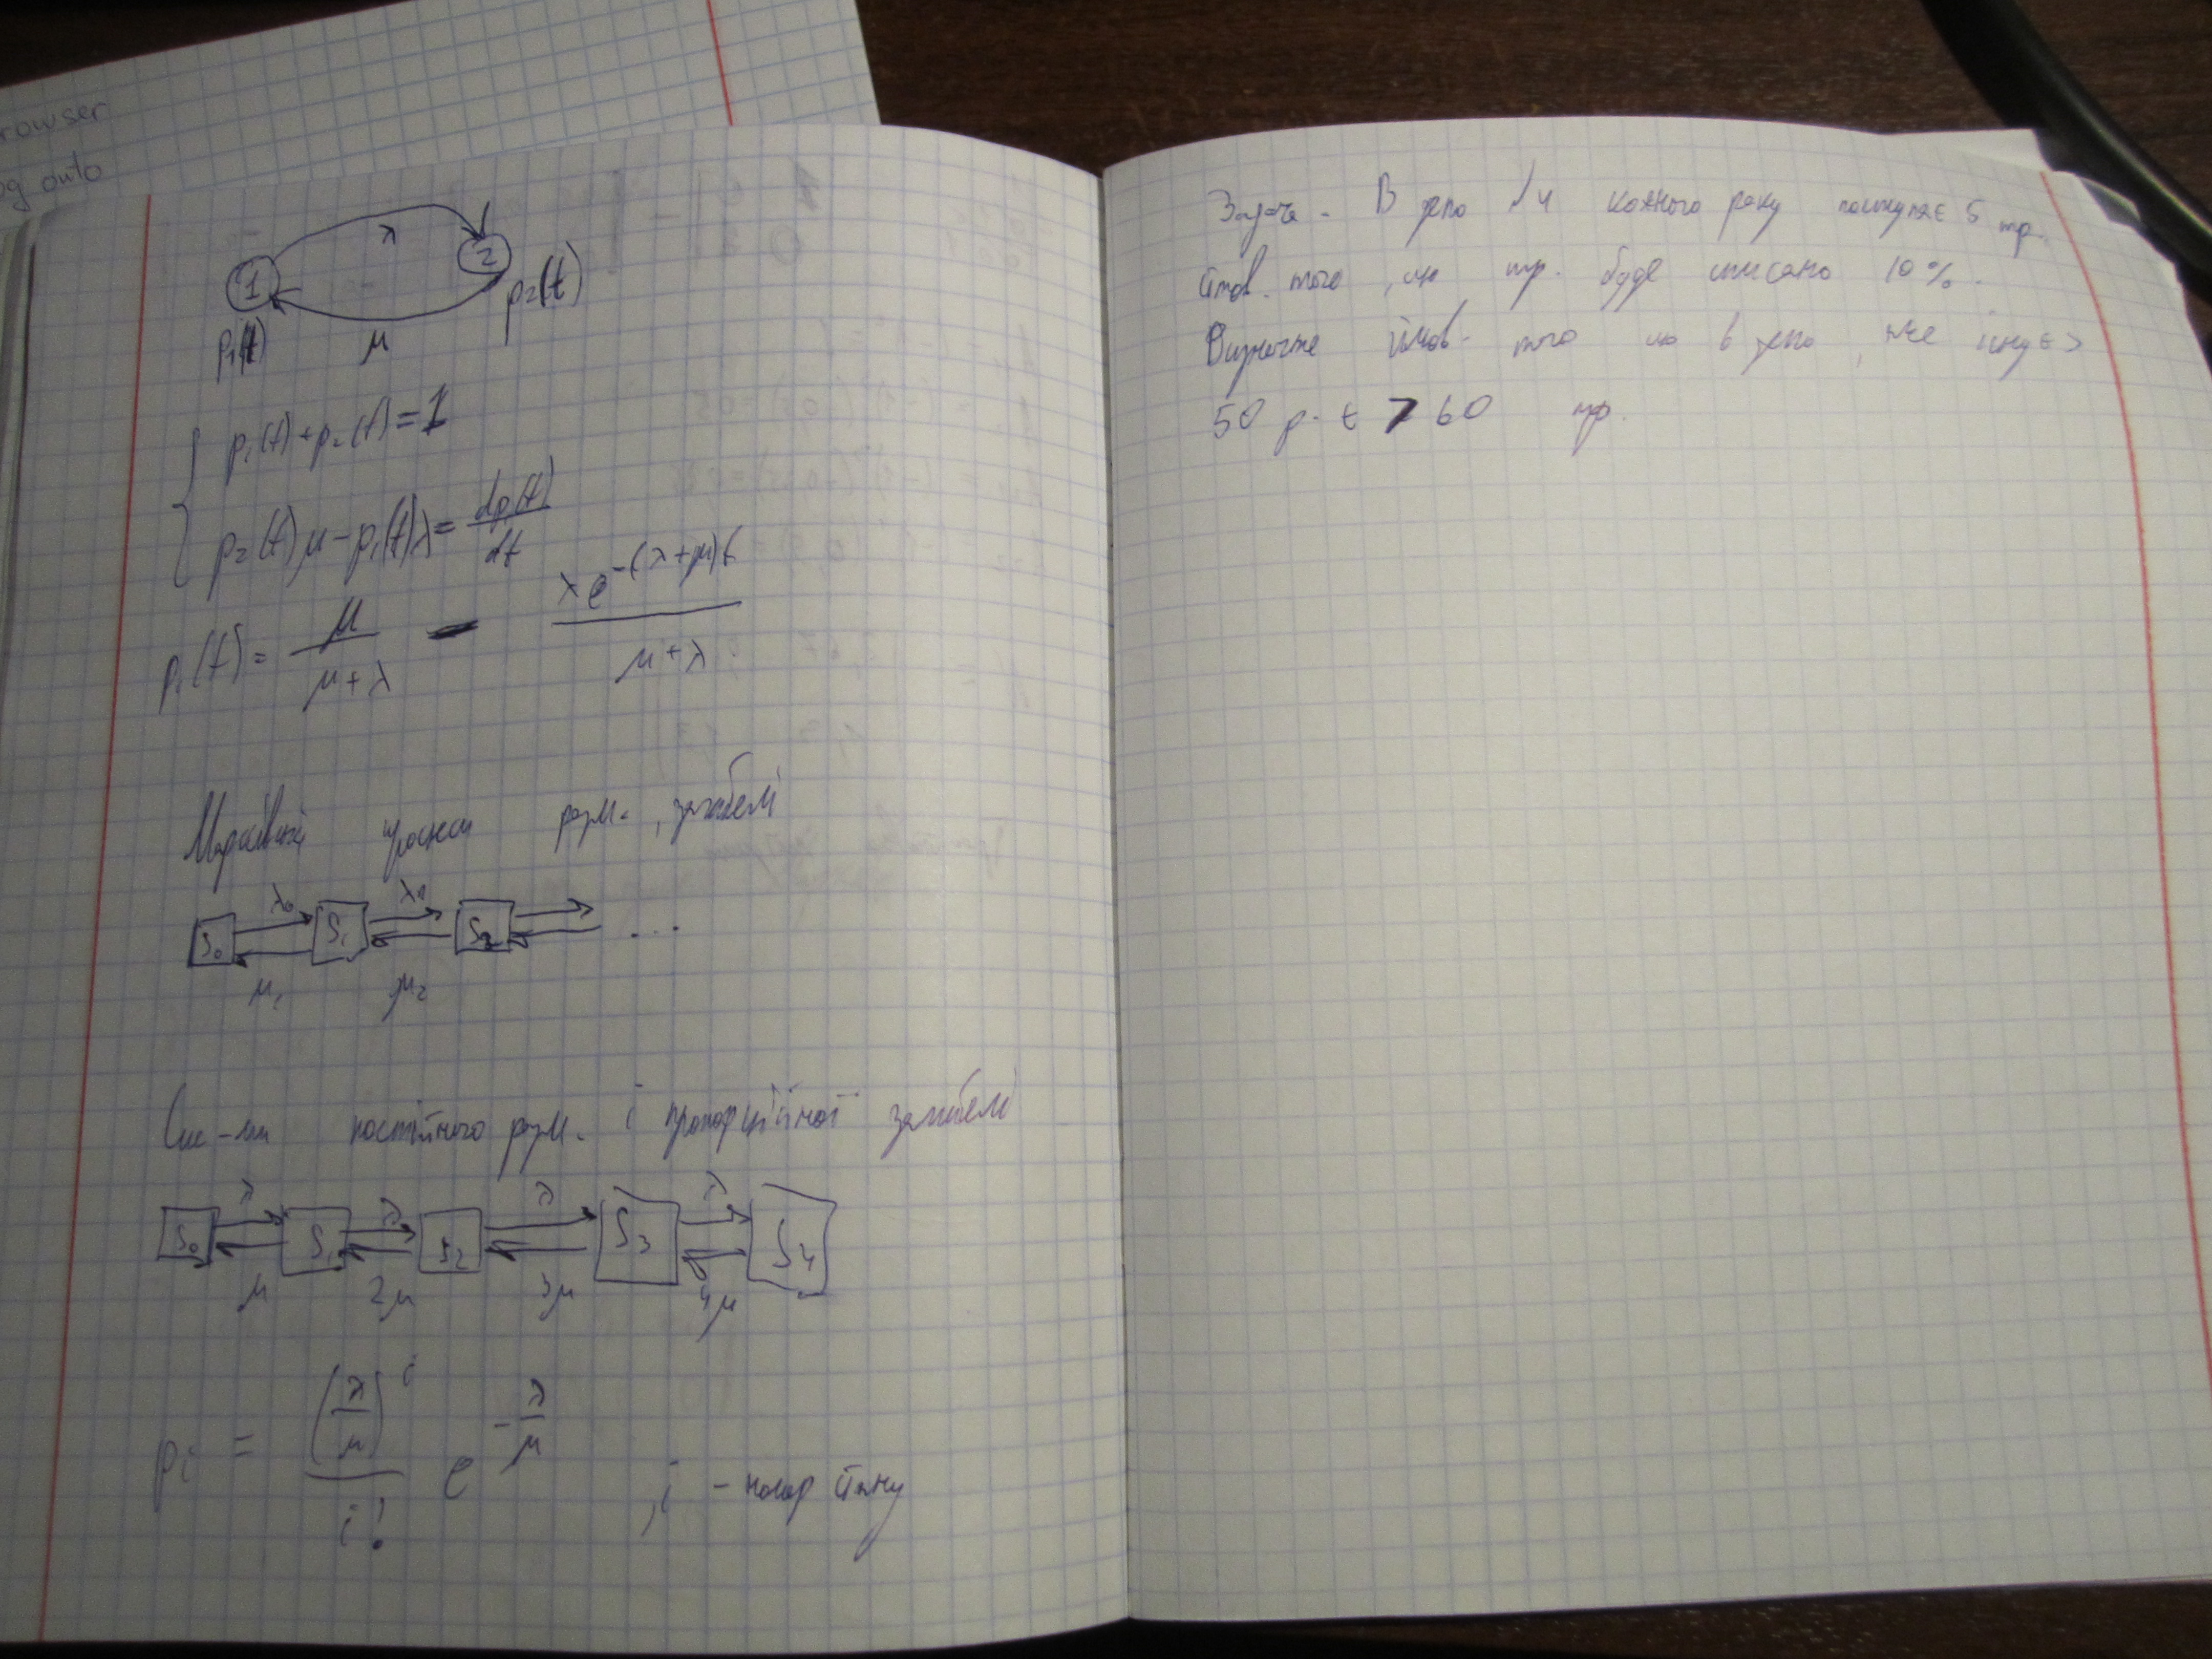 rowser
og onto
λ
1
2
p₁(t)
p₂(t)
μ
p₁(t)+p₂(t)=1
p₂(t)μ-p₁(t)λ=dp(t)/dt
p₁(t)= μ/(μ+λ) - λe^-(λ+μ)t/(μ+λ)
розм., загибелі
λ₀ λ₁
S₀ S₁ S₂ ...
μ₁ μ₂
постійного розм. і пропорційної загибелі
λ λ λ λ
S₀ S₁ S₂ S₃ S₄
μ 2μ 3μ 4μ
pᵢ = (λ/μ)^i/i! e^-λ/μ , i - номер стану
Задача - В депо №4 кожного року поступає 5 тр.
Ймов. того, що тр. буде списано 10%.
ймов. того що в депо, яке існує >
50 р. є > 60 тр.